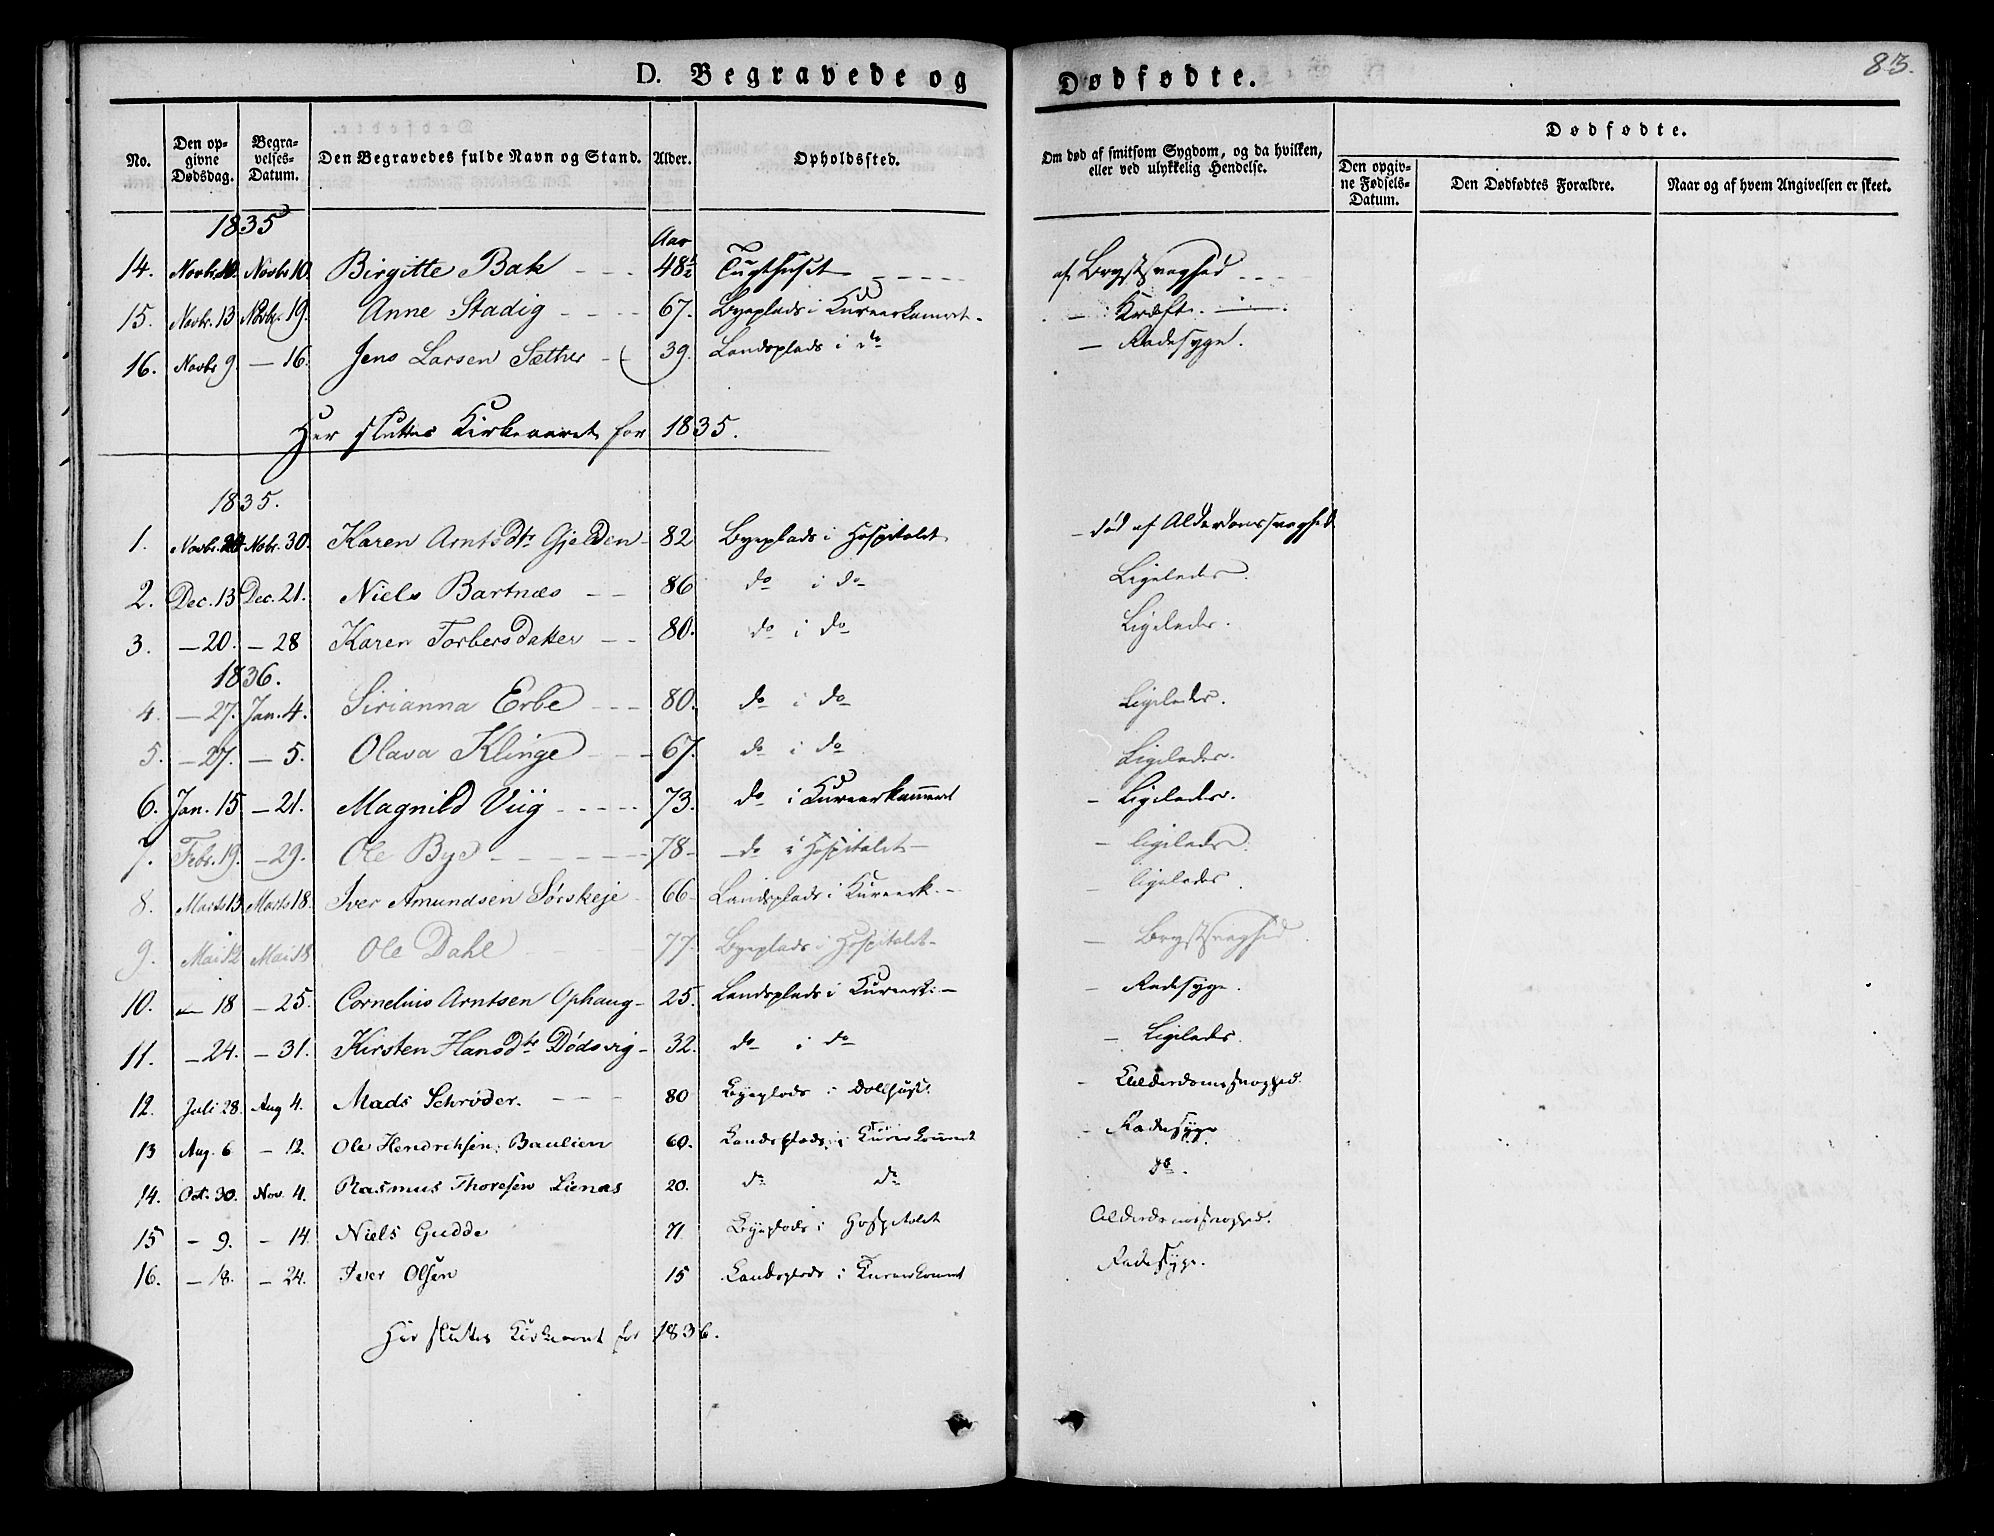 83.
D. Begravede og Dødfødte.
No. Den opgivne Dødsdag. Begravelses-Datum. Den Begravedes fulde Navn og Stand. Alder. Opholdssted. Om død af smitsom Sygdom, og da hvilken, eller ved ulykkelig Hendelse. Dødfødte. Den opgivne Fødsels-Datum. Den Dødfødtes Forældre. Naar og af hvem Angivelsen er skeet.
1835
Aar
14. Novbr. Novbr 10. Birgitte Bak 48½ Tugthuset af Brystsvaghed
15. Novbr. 13 Novbr. 19. Anne Stadig 67. Byeplads i Kureerkamret - Kræft.
16. Novbr 9. — 16. Jens Larsen Sæther 39. Landsplads i do - Radesyge.
Her sluttes Kirkeaaret for 1835.
1835.
1. Novbr. Nobr. 30. Karen Arntsdtr Gjelden 82 Byeplads i Hospitalet - død af Alderdomssvaghed
2. Dec. 13 Dec. 21. Niels Bartnæs 86 do i do Ligeledes.
3. — 20. — 28 Karen Torbersdatter 80. do i do Ligeledes.
1836.
4. — 27. Jan. 4. Sirianna Erbe 80. do i do Ligeledes.
5. — 27. — 5. Olava Klinge 67. do i do Ligeledes.
6. Jan. 15 — 21. Magnild Viig 73. do i Kureerkammeret - Ligeledes.
7. Febr. 19. — 29. Ole Bye 78 do i Hospitalet - ligeledes.
8. Marts 13 Marts 18. Iver Amundsen Sørskeje 66 Landsplads i Kureerk. - ligeledes.
9. Mai 12 Mai 18 Ole Dahl 77. Byeplads i Hospitalet - Brystsvaghed.
10. — 18 — 25. Cornelius Arntsen Ophaug 25. Landsplads i Kureerk. - Radesyge.
11. — 24. — 31. Kirsten Hansdtr Dødsvig 32. do i do - Ligeledes.
12. Juli 28. Aug 4. Mads Schrøder. 80 Byeplads i Dollhuset. - Alderdomssvaghed.
13 Aug. 6 — 12. Ole Hendriksen Baulien 60. Landsplads i Kureerkamret - Radesyge
14. Oct. 30. Nov. 4. Rasmus Thoresen Lienæs 20. do do do.
15 — 9. — 14 Niels Gudde 71 Byeplads i Hospitalet Alderdomssvaghed.
16. — 18. — 24. Iver Olsen 15 Landsplads i Kureerkamret Radesyge.
Her sluttes Kirkeaaret for 1836.